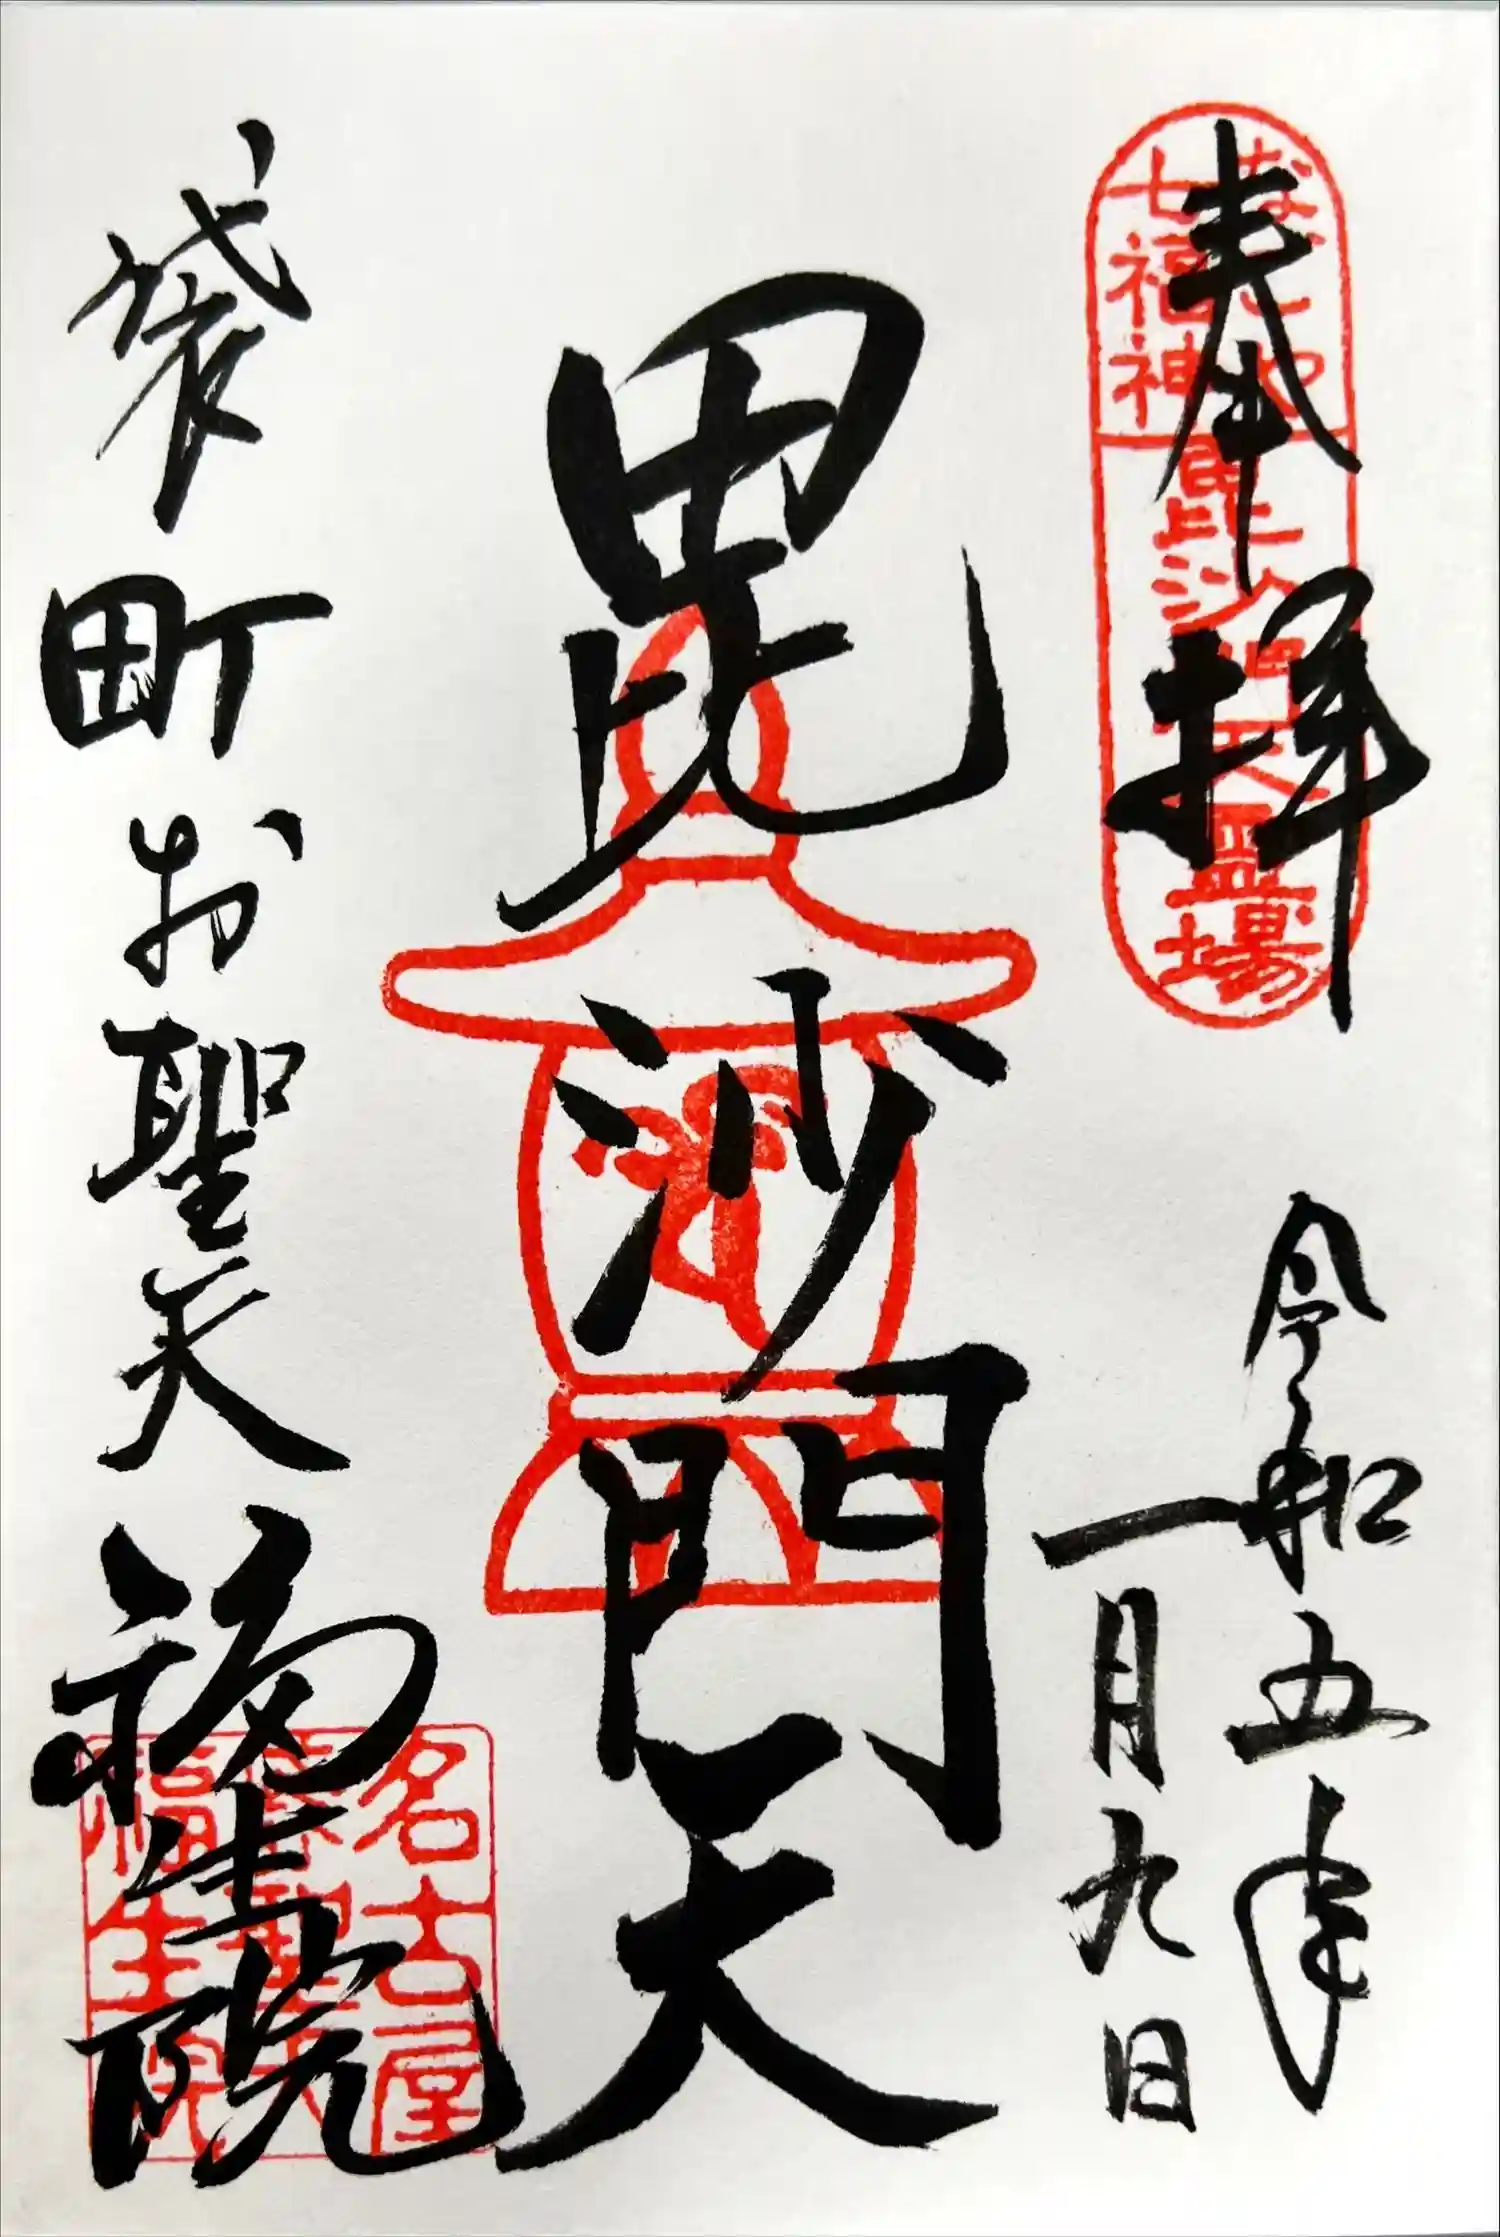 奉拝
なごや
七福神
毘沙門天霊場
令和五年
一月九日
毘沙門天
袋町お聖天
福生院
名古屋
袋聖天
福生院